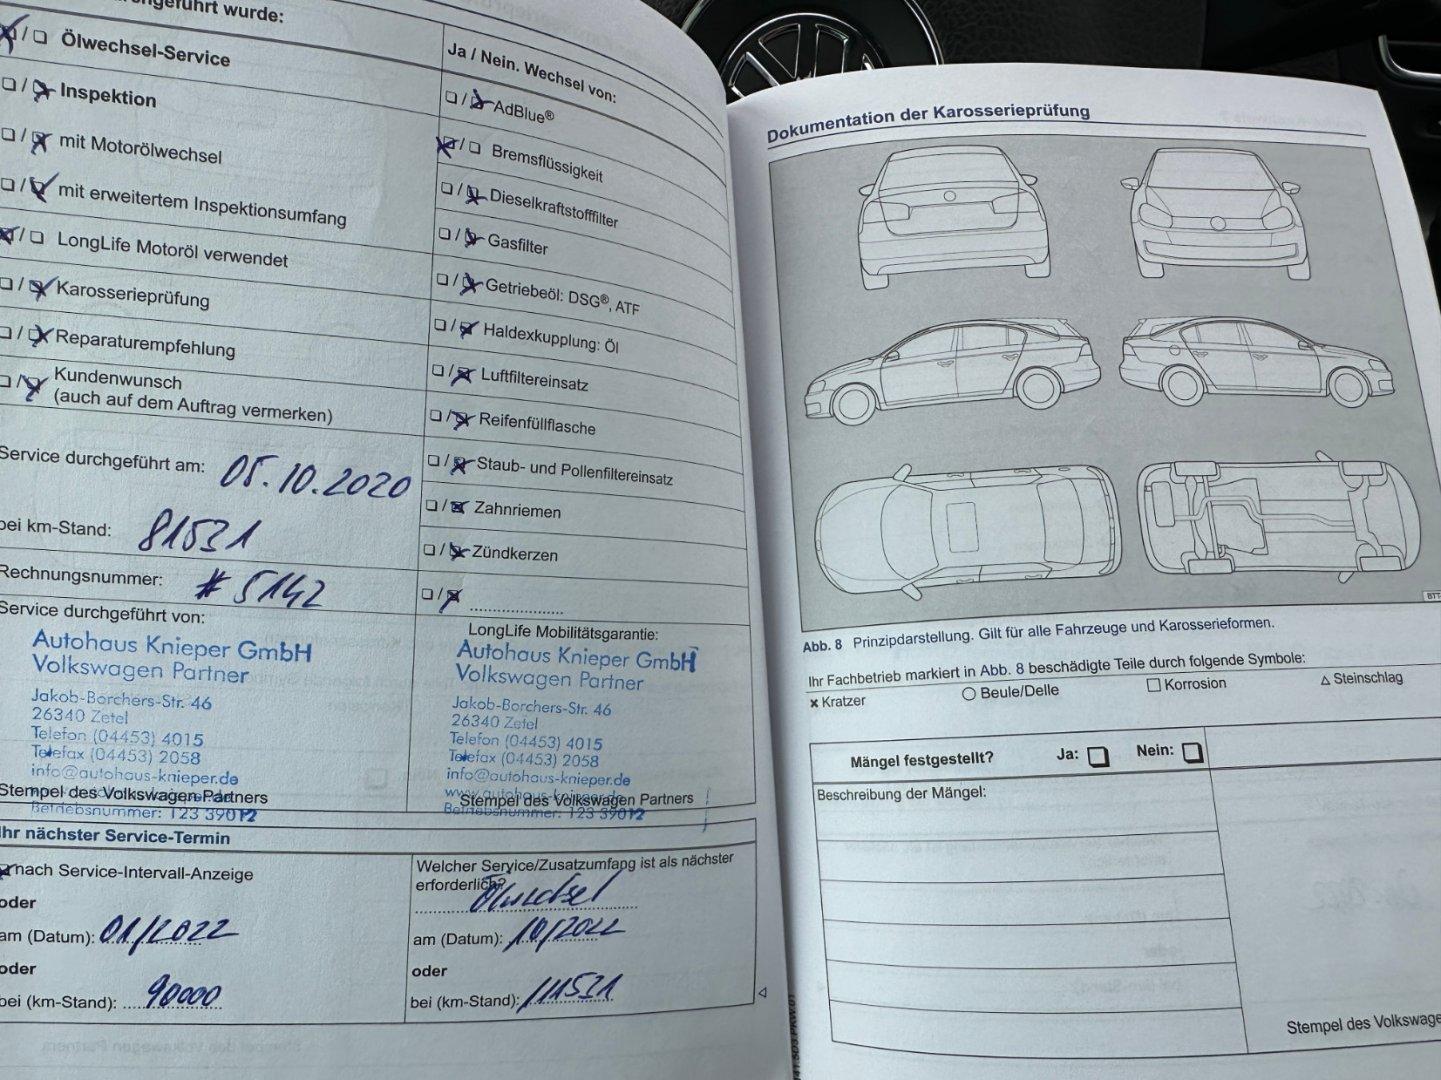 durchgeführt wurde:
Ölwechsel-Service
Inspektion
mit Motorölwechsel
mit erweitertem Inspektionsumfang
LongLife Motoröl verwendet
Karosserieprüfung
Reparaturempfehlung
Kundenwunsch
(auch auf dem Auftrag vermerken)
Service durchgeführt am: 05.10.2020
bei km-Stand: 81531
Rechnungsnummer: # 5142
Service durchgeführt von:
Autohaus Knieper GmbH
Volkswagen Partner
Jakob-Borchers-Str. 46
26340 Zetel
Telefon (04453) 4015
Telefax (04453) 2058
info@autohaus-knieper.de
Stempel des Volkswagen Partners
Betriebsnummer: 123 39012
Ja / Nein. Wechsel von:
AdBlue®
Bremsflüssigkeit
Dieselkraftstofffilter
Gasfilter
Getriebeöl: DSG®, ATF
Haldexkupplung: Öl
Luftfiltereinsatz
Reifenfüllflasche
Staub- und Pollenfiltereinsatz
Zahnriemen
Zündkerzen
LongLife Mobilitätsgarantie:
Autohaus Knieper GmbH
Volkswagen Partner
Jakob-Borchers-Str. 46
26340 Zetel
Telefon (04453) 4015
Telefax (04453) 2058
info@autohaus-knieper.de
www.autohaus-knieper.de
Stempel des Volkswagen Partners
Betriebsnummer: 123 39012
Ihr nächster Service-Termin
nach Service-Intervall-Anzeige
oder
am (Datum): 01/2022
oder
bei (km-Stand): 90000
Welcher Service/Zusatzumfang ist als nächster
erforderlich?
Ölwechsel
am (Datum): 10/2022
oder
bei (km-Stand): 111531
Dokumentation der Karosserieprüfung
Abb. 8 Prinzipdarstellung. Gilt für alle Fahrzeuge und Karosserieformen.
Ihr Fachbetrieb markiert in Abb. 8 beschädigte Teile durch folgende Symbole:
Kratzer
Beule/Delle
Korrosion
Steinschlag
Mängel festgestellt? Ja: Nein:
Beschreibung der Mängel:
Stempel des Volkswage